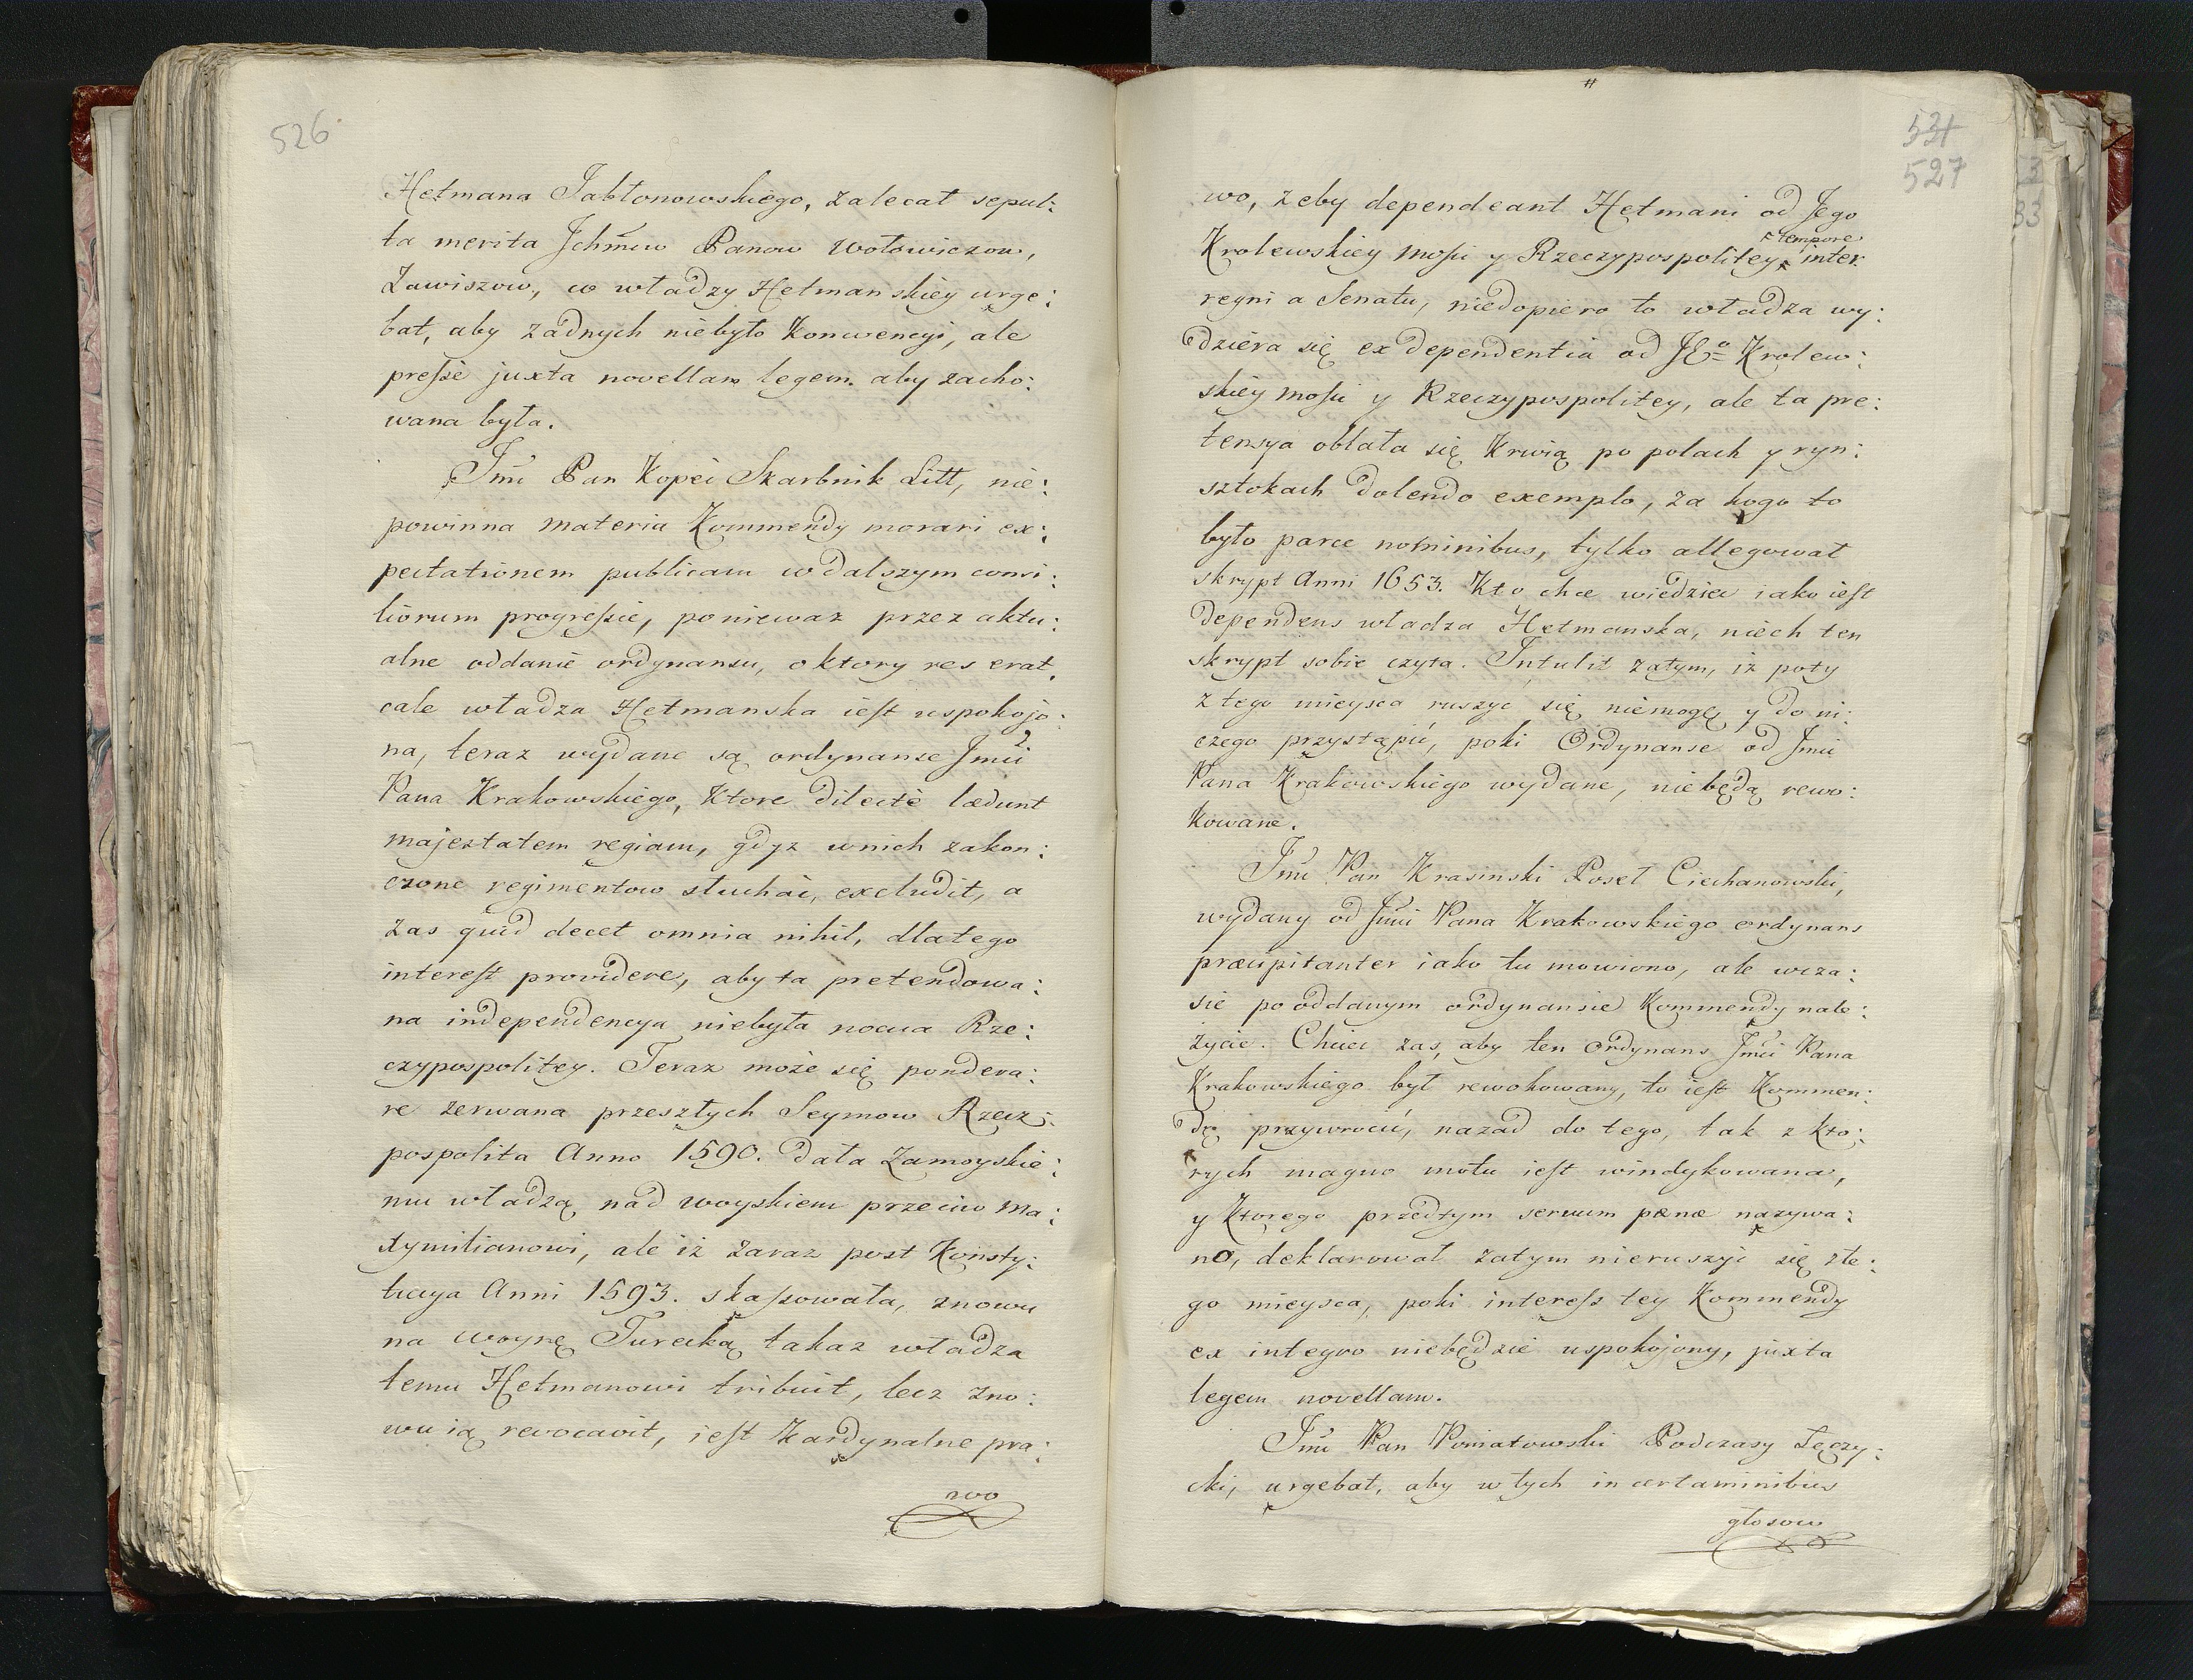 526.
Hetmana Jabłonowskiego, zalecał sepul:
ta merita Jchmćiw Panow Wołowiczow,
Zawiszow, co władzy Hetmanskiey urge:
bat, aby żadnych niebyło Konwencyi, ale
presse juxta novellam legem. aby zacho:
wana była.
Jmć Pan Kopeć Skarbnik Litt, nie:
powinna materia Kommendy morari ex:
pectationem publicam w dalszym consi:
liorum progressie, poniewaz przez aktu:
alne oddanie ordynansu, o ktory res erat,
cale władza Hetmanska iest uspokojo:
na, teraz wydane są ordynanse Jmći
Pana Krakowskiego, Ktore dilectè lædunt
majestatem regiam, gdyz w nich zakon:
czone regimentow słuchać, excludit, a
zas quid decet omnia nihil, dlatego
interest providere, aby ta pretendowa:
na independencya niebyła nocua Rze:
czypospolitey. Teraz może się pondera:
re zerwana przeszłych Seymow Rzecz:
pospolita Anno 1590. dała Zamoyskie:
mu władzą nad woyskiem przeciw Ma:
xymilianowi, ale iż zaraz post Konsty:
tucya Anni 1593. skassowała, znowu
na woynę Turecką takaz władza
temu Hetmanowi tribuit, lecz zno:
wu ią revocavit, iest Kardynalne pra:
wo
531
527
wo, zeby dependeant Hetmani od Jego
Krolewskiey Mości y Rzeczypospolitey, inter
tempore
regni a Senatu, niedopiero to władza wy:
dziera się ex dependentia od JEo Krolew:
skiey Mości y Rzeczypospolitey, ale ta pre:
tensya oblała się Krwią po polach y ryn:
sztokach dolendo exemplo, za kogo to
było parce nominibus, tylko allegował
skrypt Anni 1653. Kto chce wiedzieć iako iest
dependens władza Hetmanska, niech ten
skrypt sobie czyta. Intulit zatym, iż poty
z tego mieysca ruszyć się niemogę y do ni:
czego przystąpić, poki Ordynanse od Jmći
Pana Krakowskiego wydane, niebędą rewo:
kowane.
Jmć Pan Krasinski Poseł Ciechanowski,
wydany od Jmći Pana Krakowskiego ordynans
præcipitanter iako tu mowiono, ale wcza:
sie po oddanym ordynansie Kommendy nale:
życie. Chcieć zas, aby ten Ordynans Jmći Pana
Krakowskiego był rewokowany, to iest Kommen:
dę przywrocić, nazad do tego, tak z kto:
rych magno motu iest windykowana,
y Ktorego przedtym servum pænæ nazywa:
no, deklarował zatym nieruszyć się z te:
go mieysca, poki interess tey Kommendy
ex integro niebędzie uspokojony, juxta
legem novellam.
Jmć Pan Poniatowski Podczasy Łęczy:
cki, urgebat, aby w tych in certaminibus
głosow